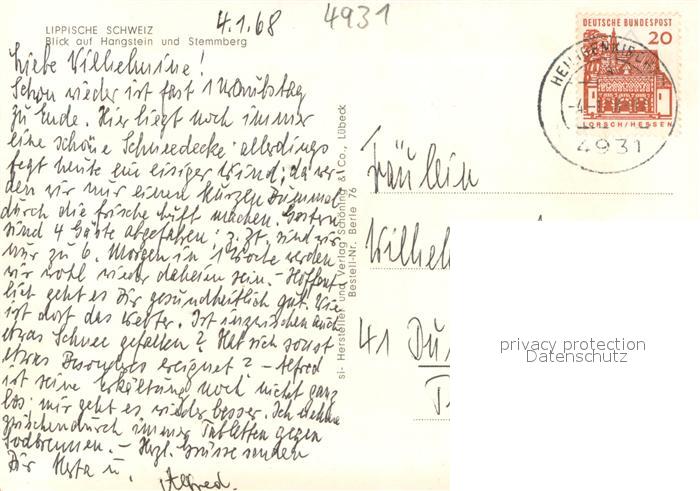 4.1.68
4931
LIPPISCHE SCHWEIZ
Blick auf Hangstein und Stemmberg
DEUTSCHE BUNDESPOST
20
LORSCH/HESSEN
HEILIGENKIRCHEN
4931
Liebe Wilhelmine!
Schon wieder ist fast 1 Urlaubstag
zu Ende. Hier liegt noch immer
eine schöne Schneedecke allerdings
fegt heute ein eisiger Wind; da wer-
den wir nur einen kurzen Bummel
durch die frische Luft machen. Gestern
sind 4 Gäste abgefahren; z.Zt. sind wir
nur zu 6. Morgen in 1 Woche werden
wir wohl wieder daheim sein. - Hoffent-
lich geht es Dir gesundheitlich gut. Wie
ist dort das Wetter. Ist inzwischen auch
etwas Schnee gefallen? Hat sich sonst
etwas Besonderes ereignet? - Alfred
ist seine Erkältung noch nicht ganz
los; mir geht es wieder besser. Ich nehme
zwischendurch immer Tabletten gegen
Sodbrennen. - Herzl. Grüsse senden
Dir Herta u.
Alfred.
si- Hersteller und Verlag Schöning & Co., Lübeck
Bestell-Nr. Berle 76
Fräulein
Wilhel
41 Du
privacy protection
Datenschutz